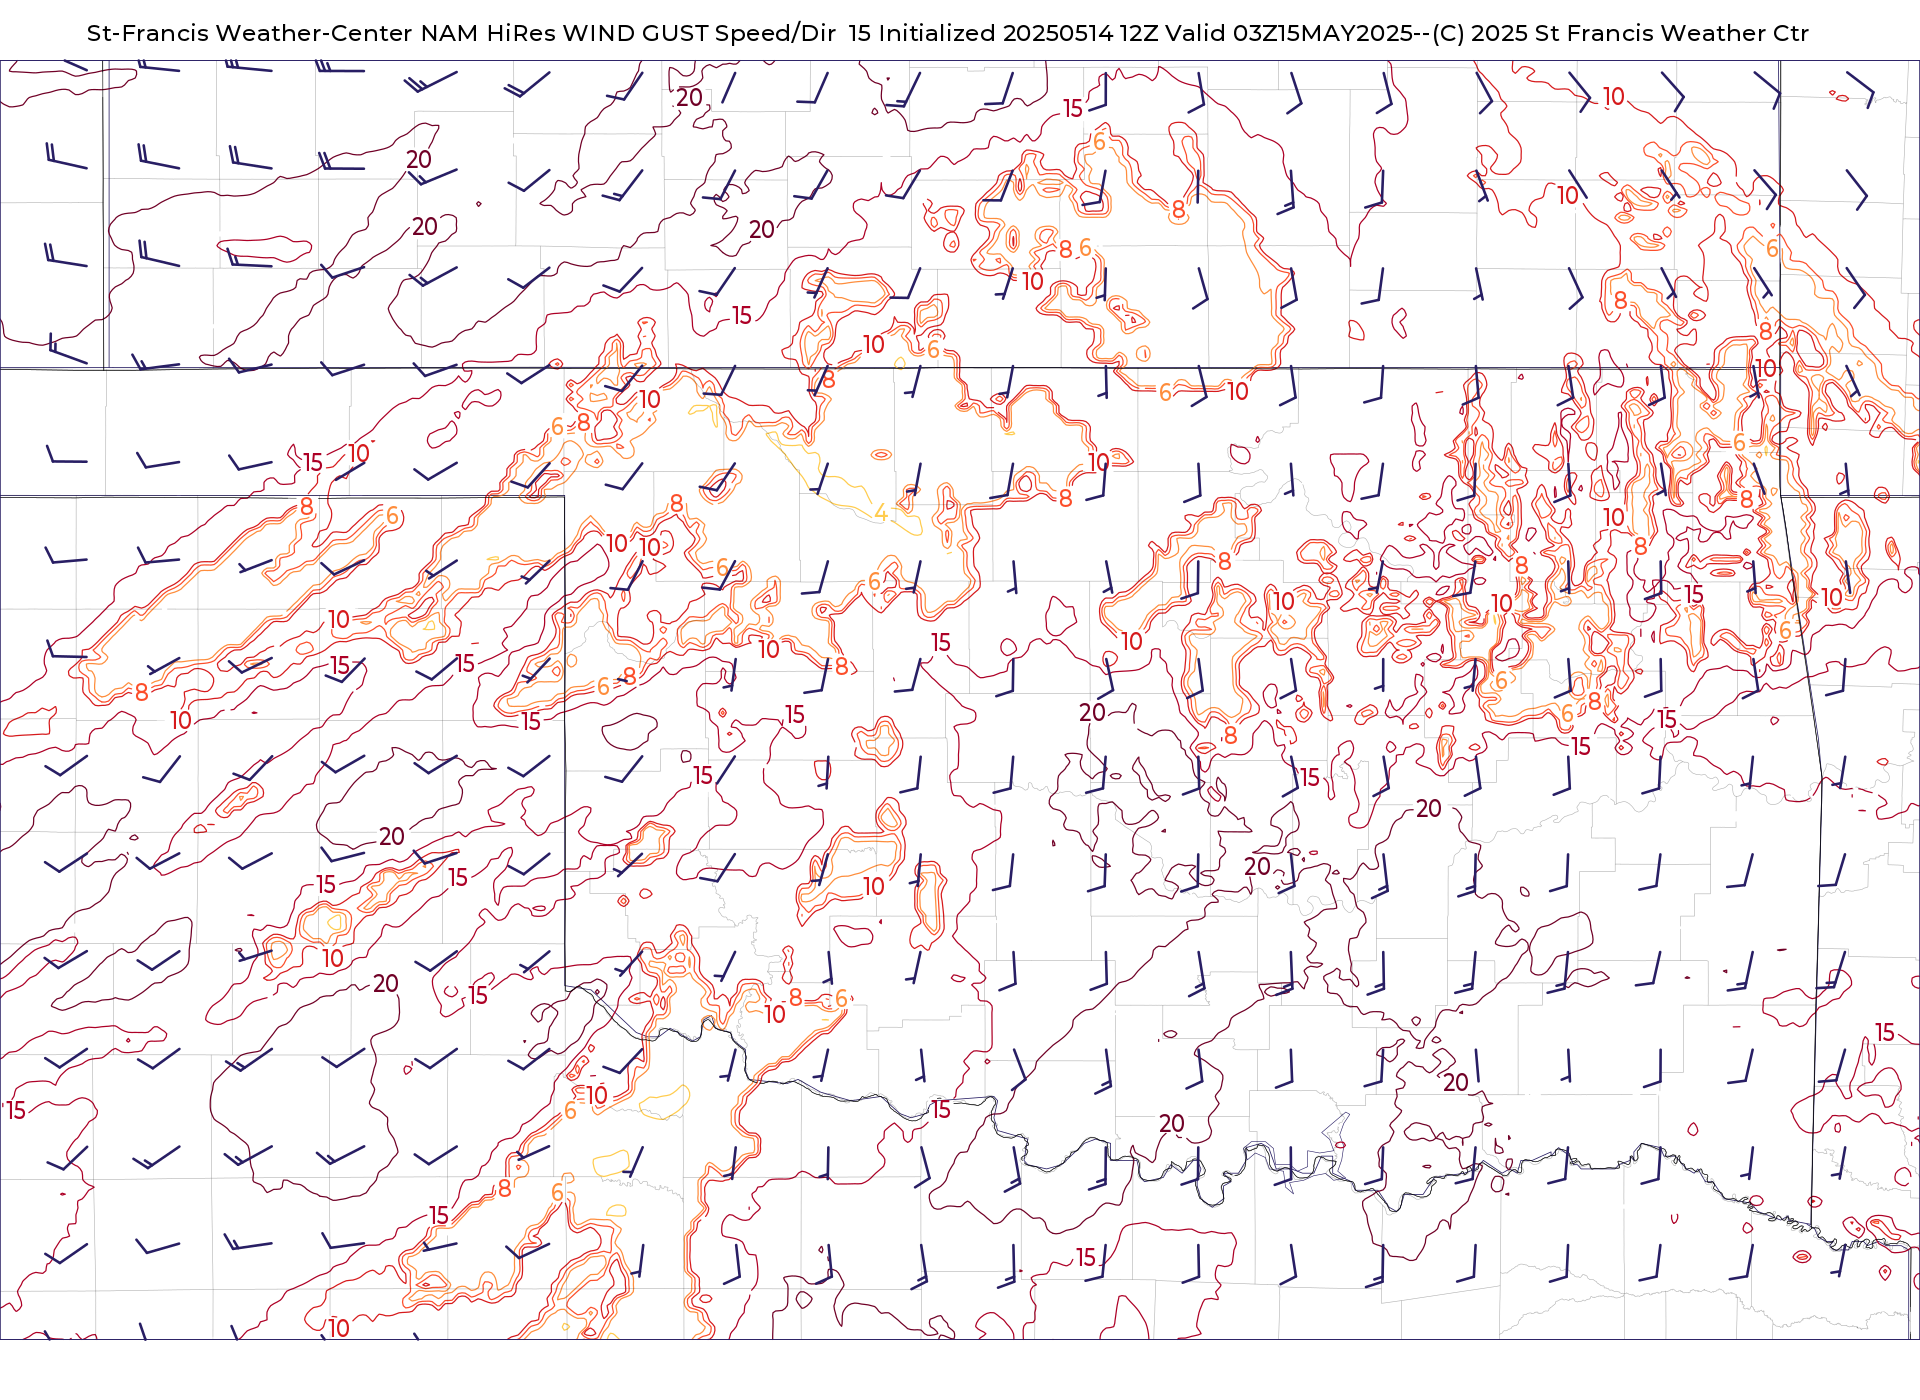 St-Francis Weather-Center NAM HiRes WIND GUST Speed/Dir 15 Initialized 20250514 12Z Valid 03Z15MAY2025--(C) 2025 St Francis Weather Ctr
20 15 10
20 6
10
20 8
20 8 6 6
10
15 8
10 6 8
10
8 6 10
10
6 8 6
15 10 10
8 6 8 8 8
4 10
10 10 8
6 6 8 8
15
10 10 10 10
10 15 10 6
15 15 8 8
8 6 6
10 15 15 20 8 6 8 15
15
15 15
20 20
15 15 10 20
10 20 15 8 6
10
15
15 10 6 15 20 20
8 6
15 15
10